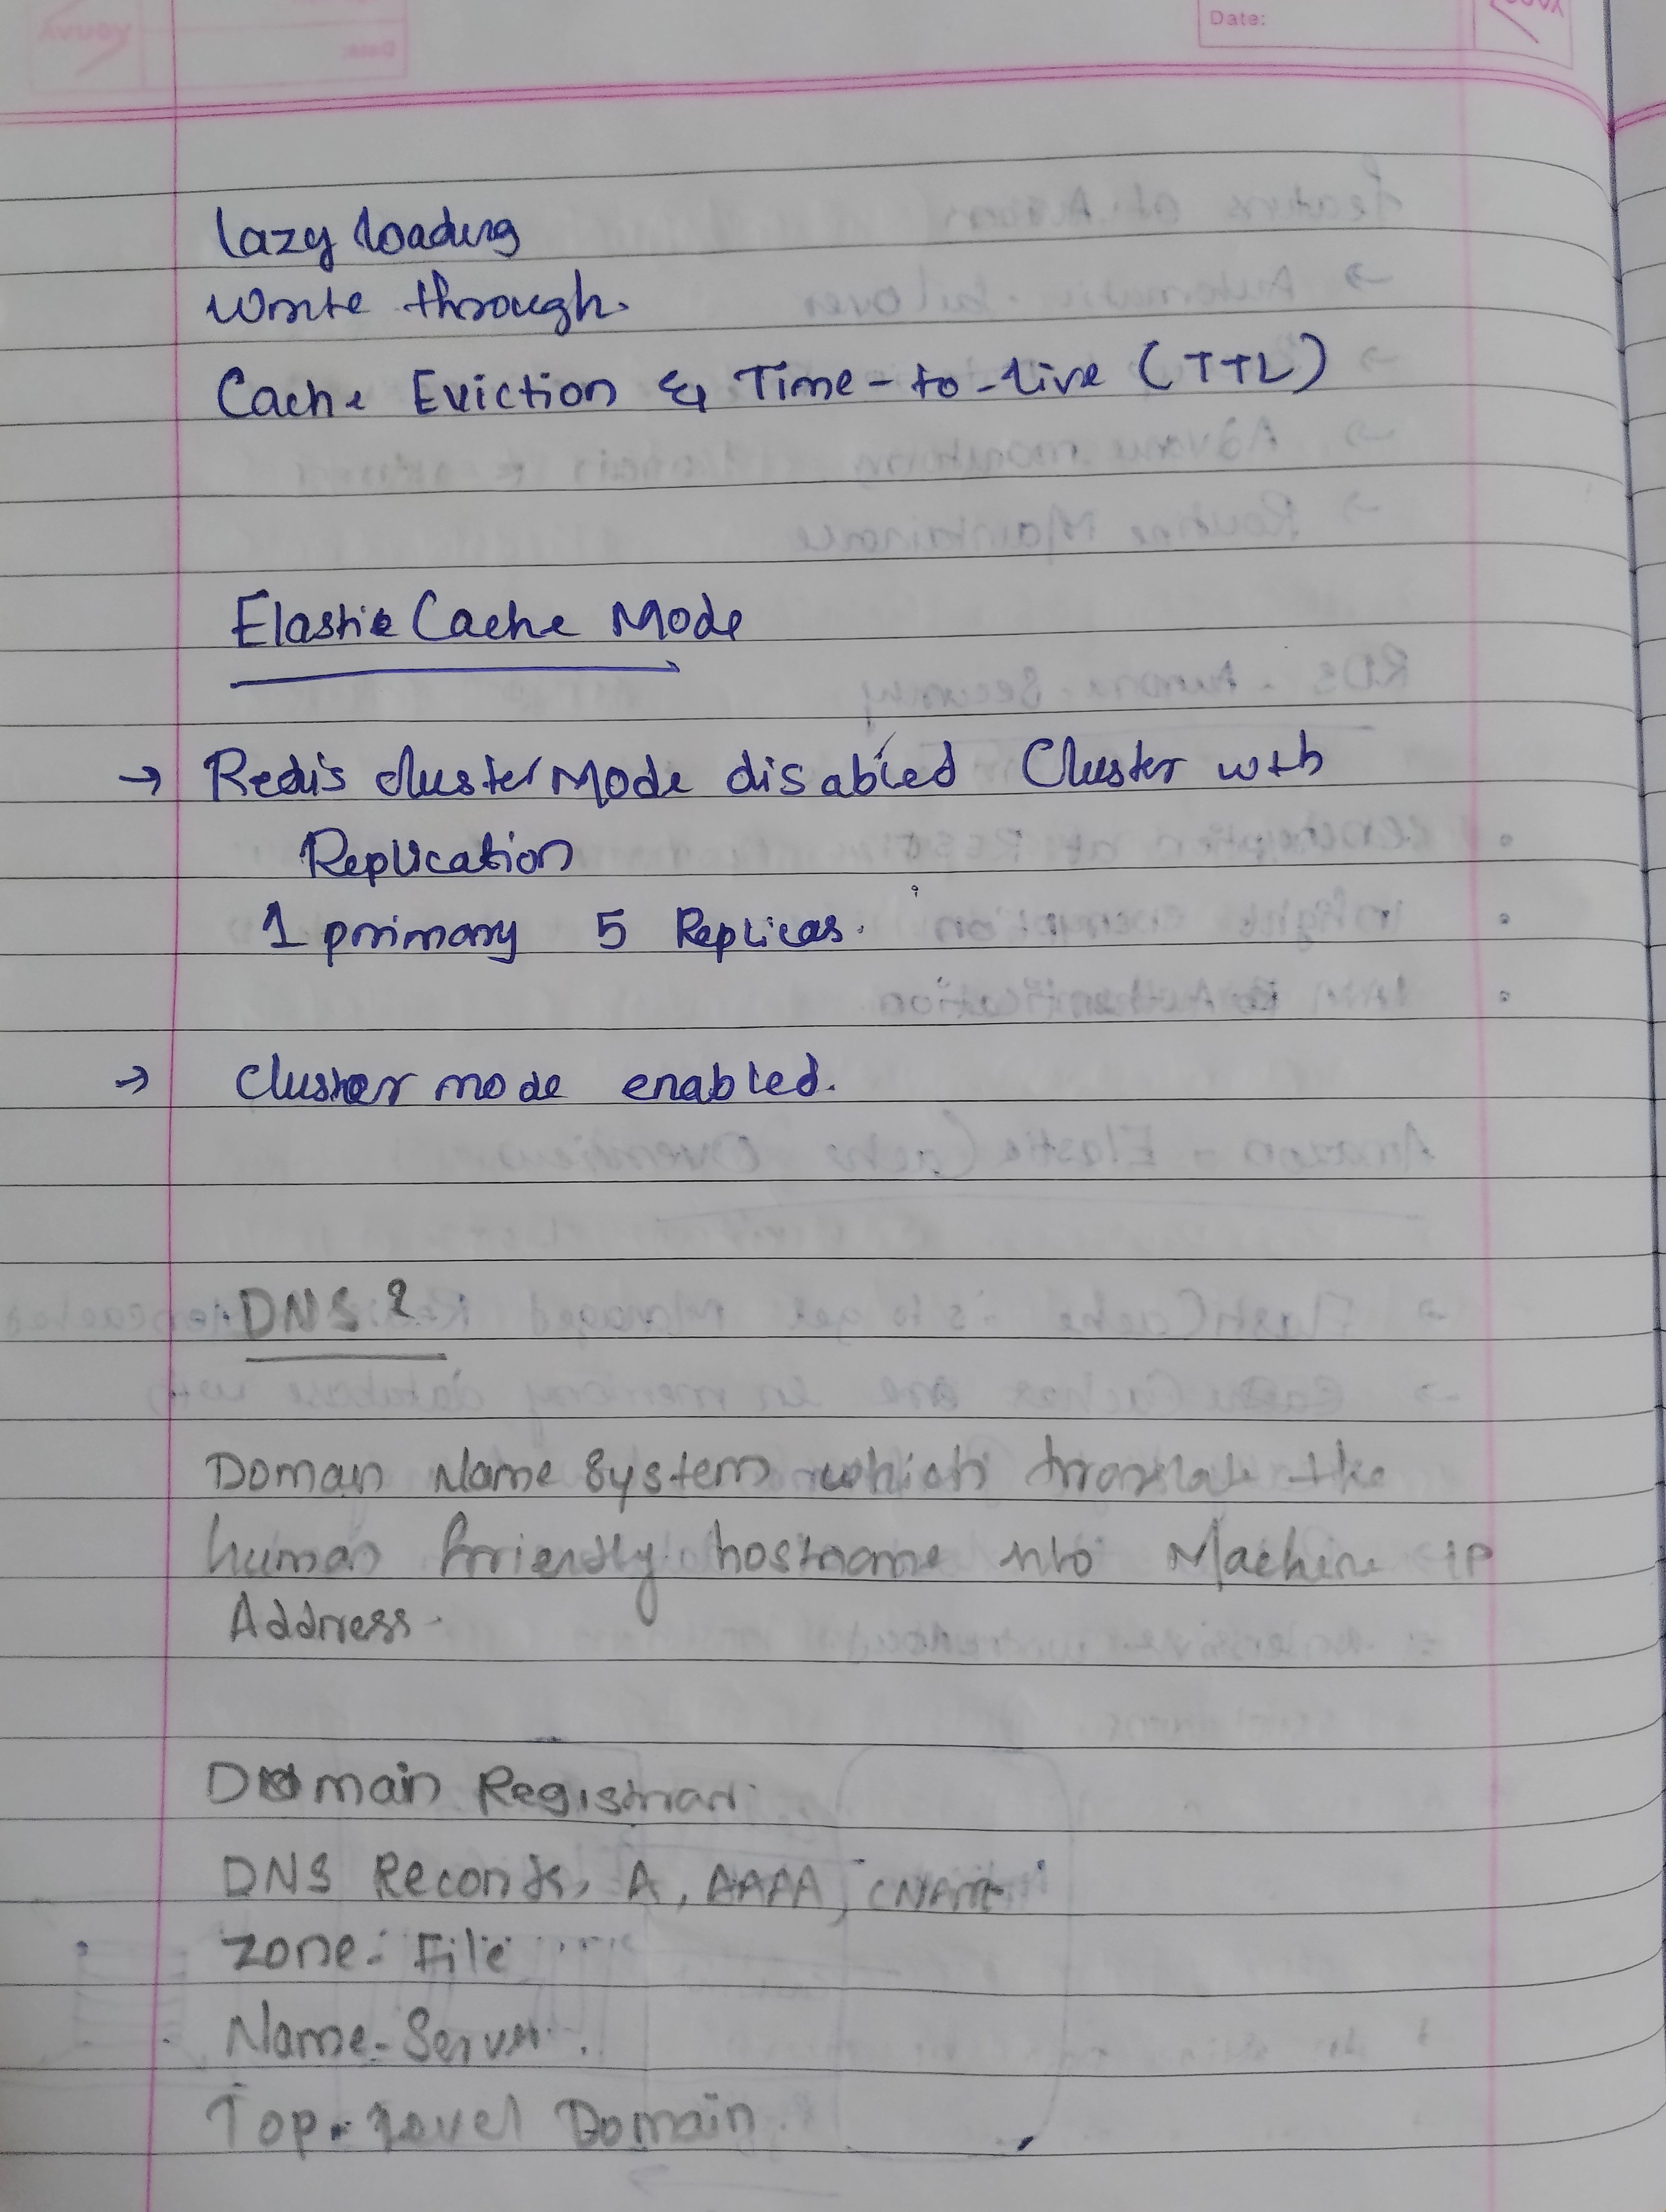 Date:
Lazy loading
Write through.
Cache Eviction & Time-to-live (TTL)
Elastic Cache Mode
→ Redis cluster Mode disabled Cluster with
Replication
1 primary 5 Replicas.
→ Cluster mode enabled.
DNS ?
Domain Name System which translate the
human friendly hostname into Machine IP
Address.
Domain Registrar
DNS Records, A, AAAA, CNAME
Zone - File
Name-Server.
Top-Level Domain